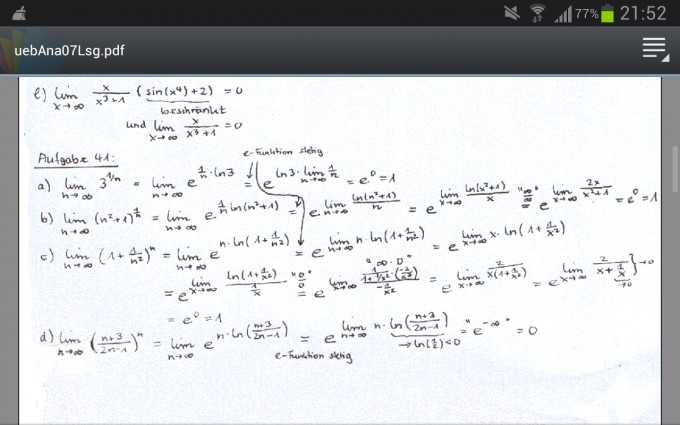 77% 21:52
uebAna07Lsg.pdf
e) lim x→∞ x/(x³+1) (sin(x⁴)+2) = 0
beschränkt
und lim x→∞ x/(x³+1) = 0
e-Funktion stetig
Aufgabe 41:
a) lim n→∞ 3^(1/n) = lim n→∞ e^(1/n · ln3) = e^(ln3 · lim n→∞ 1/n) = e⁰ = 1
b) lim n→∞ (n²+1)^(1/n) = lim n→∞ e^(1/n ln(n²+1)) = e^(lim n→∞ ln(n²+1)/n) = e^(lim x→∞ ln(x²+1)/x) "∞/∞" = e^(lim x→∞ 2x/(x²+1)) = e⁰ = 1
c) lim n→∞ (1+1/n²)^n = lim n→∞ e^(n·ln(1+1/n²)) = e^(lim n→∞ n·ln(1+1/n²)) = e^(lim x→∞ x·ln(1+1/x²))
"∞·0"
= e^(lim x→∞ ln(1+1/x²)/(1/x)) "0/0" = e^(lim x→∞ (1/(1+1/x²)·(-2/x³))/(-1/x²)) = e^(lim x→∞ 2/(x(1+1/x²))) = e^(lim x→∞ 2/(x+1/x)) }→0 →0
= e⁰ = 1
d) lim n→∞ ((n+3)/(2n-1))^n = lim n→∞ e^(n·ln((n+3)/(2n-1))) = e^(lim n→∞ n·ln((n+3)/(2n-1))) = "e^(-∞)" = 0
→ln(½)<0
e-Funktion stetig